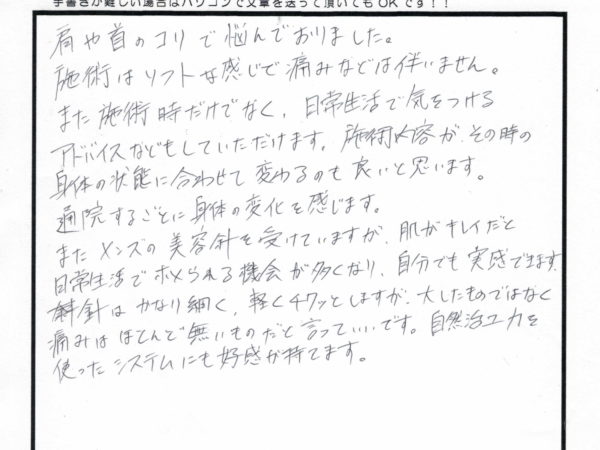 手書きが難しい場合はパソコンで文章を送って頂いてもOKです！！
肩や首のコリで悩んでおりました。
施術はソフトな感じで痛みなどは伴いません。
また施術時だけでなく、日常生活で気をつける
アドバイスなどもしていただけます。施術内容が、その時の
身体の状態に合わせて変わるのも良いと思います。
通院するごとに身体の変化を感じます。
またメンズの美容針を受けていますが、肌がキレイだと
日常生活でホメられる機会が多くなり、自分でも実感できます。
針はかなり細く、軽くチクッとしますが、大したものではなく
痛みはほとんで無いものだと言っていいです。自然治ユ力を
使ったシステムにも好感が持てます。